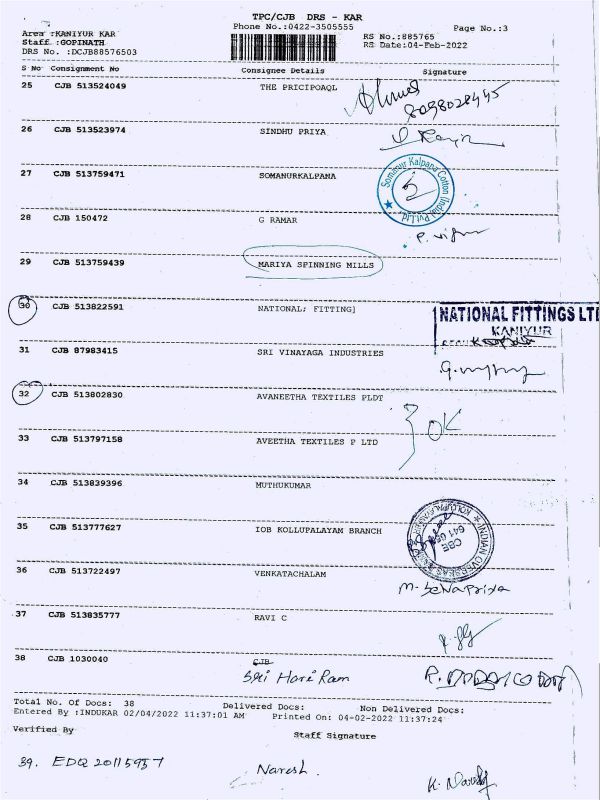 TPC/CJB DRS - KAR
Phone No.:0422-3505555
Page No.:3
Area :KANIYUR KAR
Staff :GOPINATH
DRS No. :DCJB88576503
RS No.:885765
RS Date:04-Feb-2022
S No Consignment No Consignee Details Signature
25 CJB 513524049 THE PRICIPOAQL
8098028445
26 CJB 513523974 SINDHU PRIYA
27 CJB 513759471 SOMANURKALPANA
Somanur Kalpana Cotton (India) Pvt.Ltd
28 CJB 150472 G RAMAR
29 CJB 513759439 MARIYA SPINNING MILLS
30 CJB 513822591 NATIONAL; FITTING]
NATIONAL FITTINGS LT
KANIYUR
31 CJB 87983415 SRI VINAYAGA INDUSTRIES
32 CJB 513802830 AVANEETHA TEXTILES PLDT
OK
33 CJB 513797158 AVEETHA TEXTILES P LTD
34 CJB 513839396 MUTHUKUMAR
35 CJB 513777627 IOB KOLLUPALAYAM BRANCH
INDIAN OVERSEAS
CBE
36 CJB 513722497 VENKATACHALAM
37 CJB 513835777 RAVI C
38 CJB 1030040 CJB
Sri Hari Ram
Total No. Of Docs: 38 Delivered Docs: Non Delivered Docs:
Entered By :INDUKAR 02/04/2022 11:37:01 AM Printed On: 04-02-2022 11:37:24
Verified By
Staff Signature
39. EDQ 20115957 Naresh.
K. Naresh